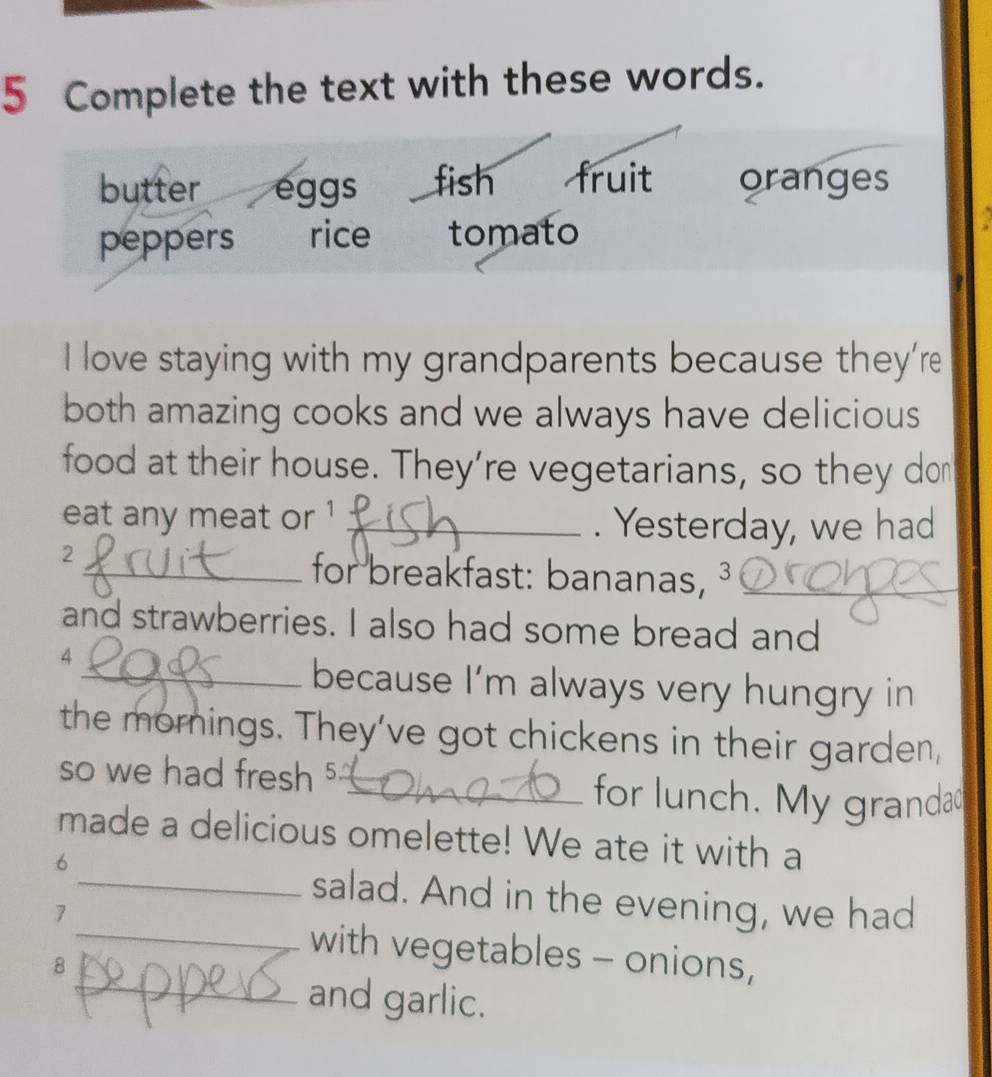 5 Complete the text with these words.
butter eggs fish fruit oranges
peppers rice tomato
I love staying with my grandparents because they're
both amazing cooks and we always have delicious
food at their house. They're vegetarians, so they don
eat any meat or 1 fish . Yesterday, we had
2 fruit for breakfast: bananas, 3 oranges
and strawberries. I also had some bread and
4 eggs because I'm always very hungry in
the mornings. They've got chickens in their garden,
so we had fresh 5 tomato for lunch. My grandad
made a delicious omelette! We ate it with a
6 salad. And in the evening, we had
7 with vegetables – onions,
8 peppers and garlic.